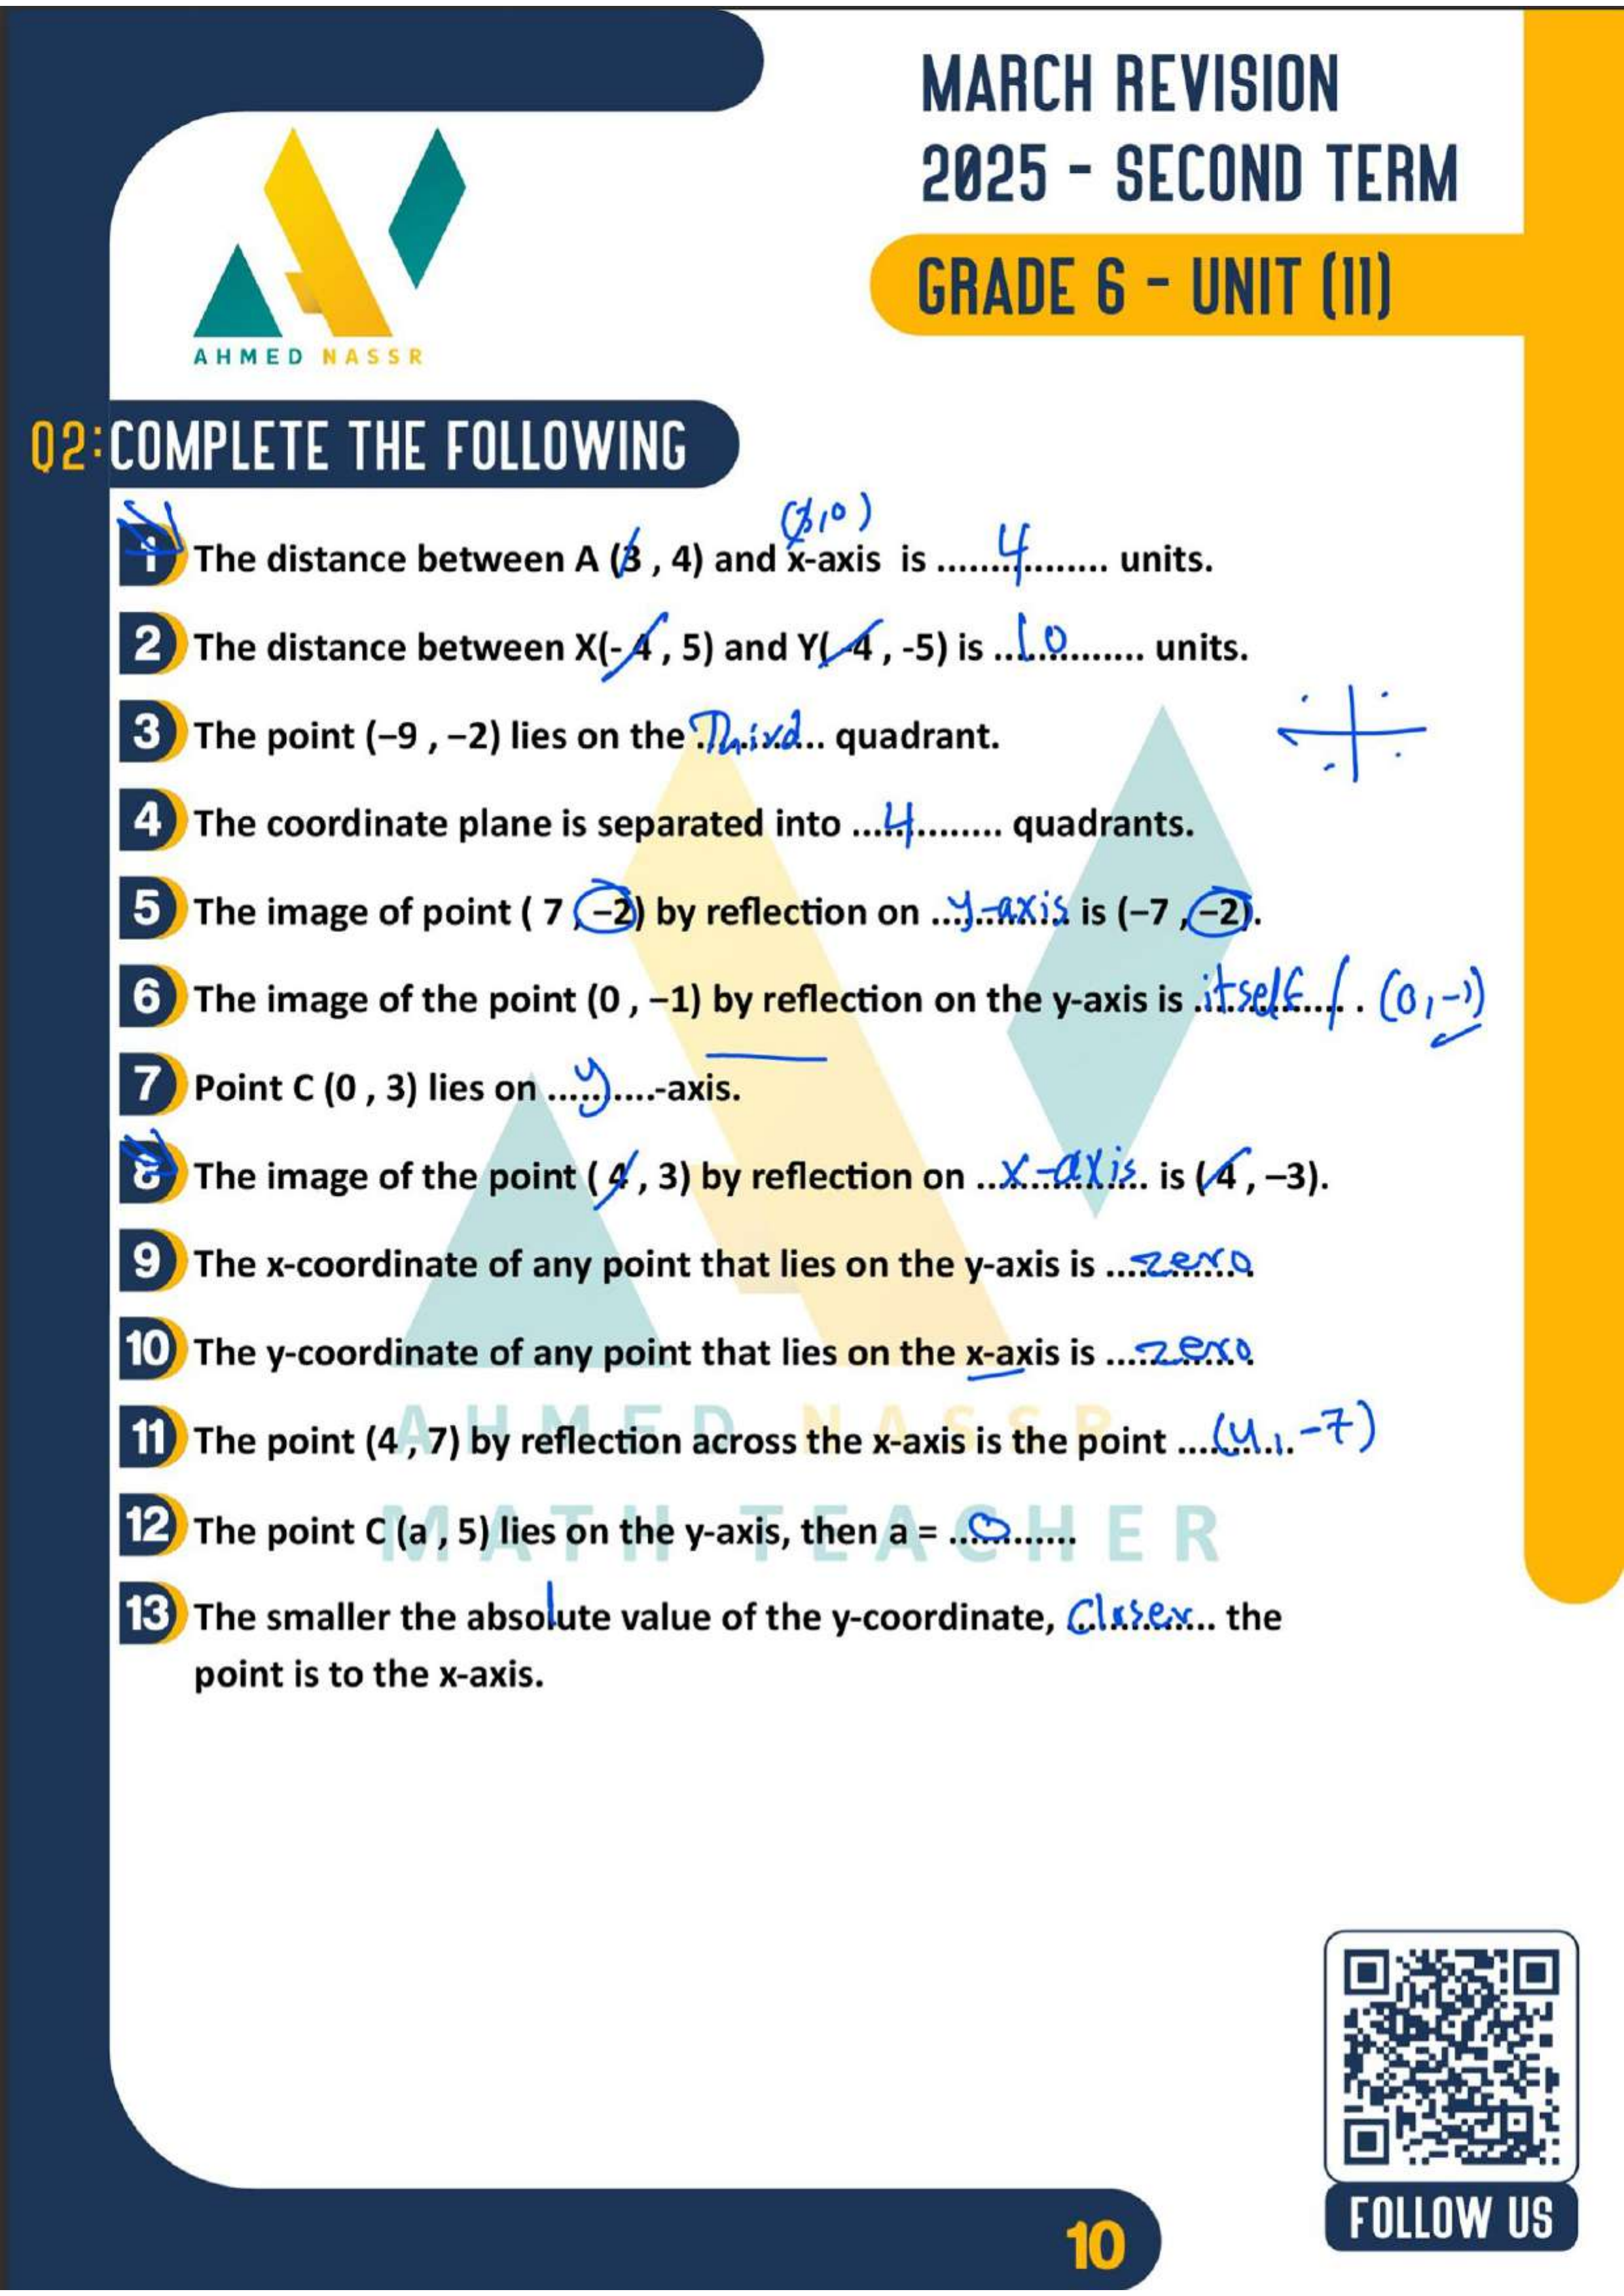 MARCH REVISION
2025 - SECOND TERM
GRADE 6 - UNIT (11)
AHMED NASSR
Q2: COMPLETE THE FOLLOWING
(3,0)
1 The distance between A (3 , 4) and x-axis is .......4........ units.
2 The distance between X(- 4 , 5) and Y(-4 , -5) is ...10......... units.
3 The point (−9 , −2) lies on the Third.. quadrant.
4 The coordinate plane is separated into .....4........ quadrants.
5 The image of point ( 7 , −2) by reflection on ...y-axis is (−7 , −2).
6 The image of the point (0 , −1) by reflection on the y-axis is itself / . (0,-1)
7 Point C (0 , 3) lies on .....y....-axis.
8 The image of the point ( 4 , 3) by reflection on ...x-axis. is ( 4 , −3).
9 The x-coordinate of any point that lies on the y-axis is ....zero.
10 The y-coordinate of any point that lies on the x-axis is ....zero.
11 The point (4 , 7) by reflection across the x-axis is the point ...(4,-7)
12 The point C (a , 5) lies on the y-axis, then a = ...0.......
13 The smaller the absolute value of the y-coordinate, Closer.. the
point is to the x-axis.
AHMED NASSR
MATH TEACHER
10
FOLLOW US